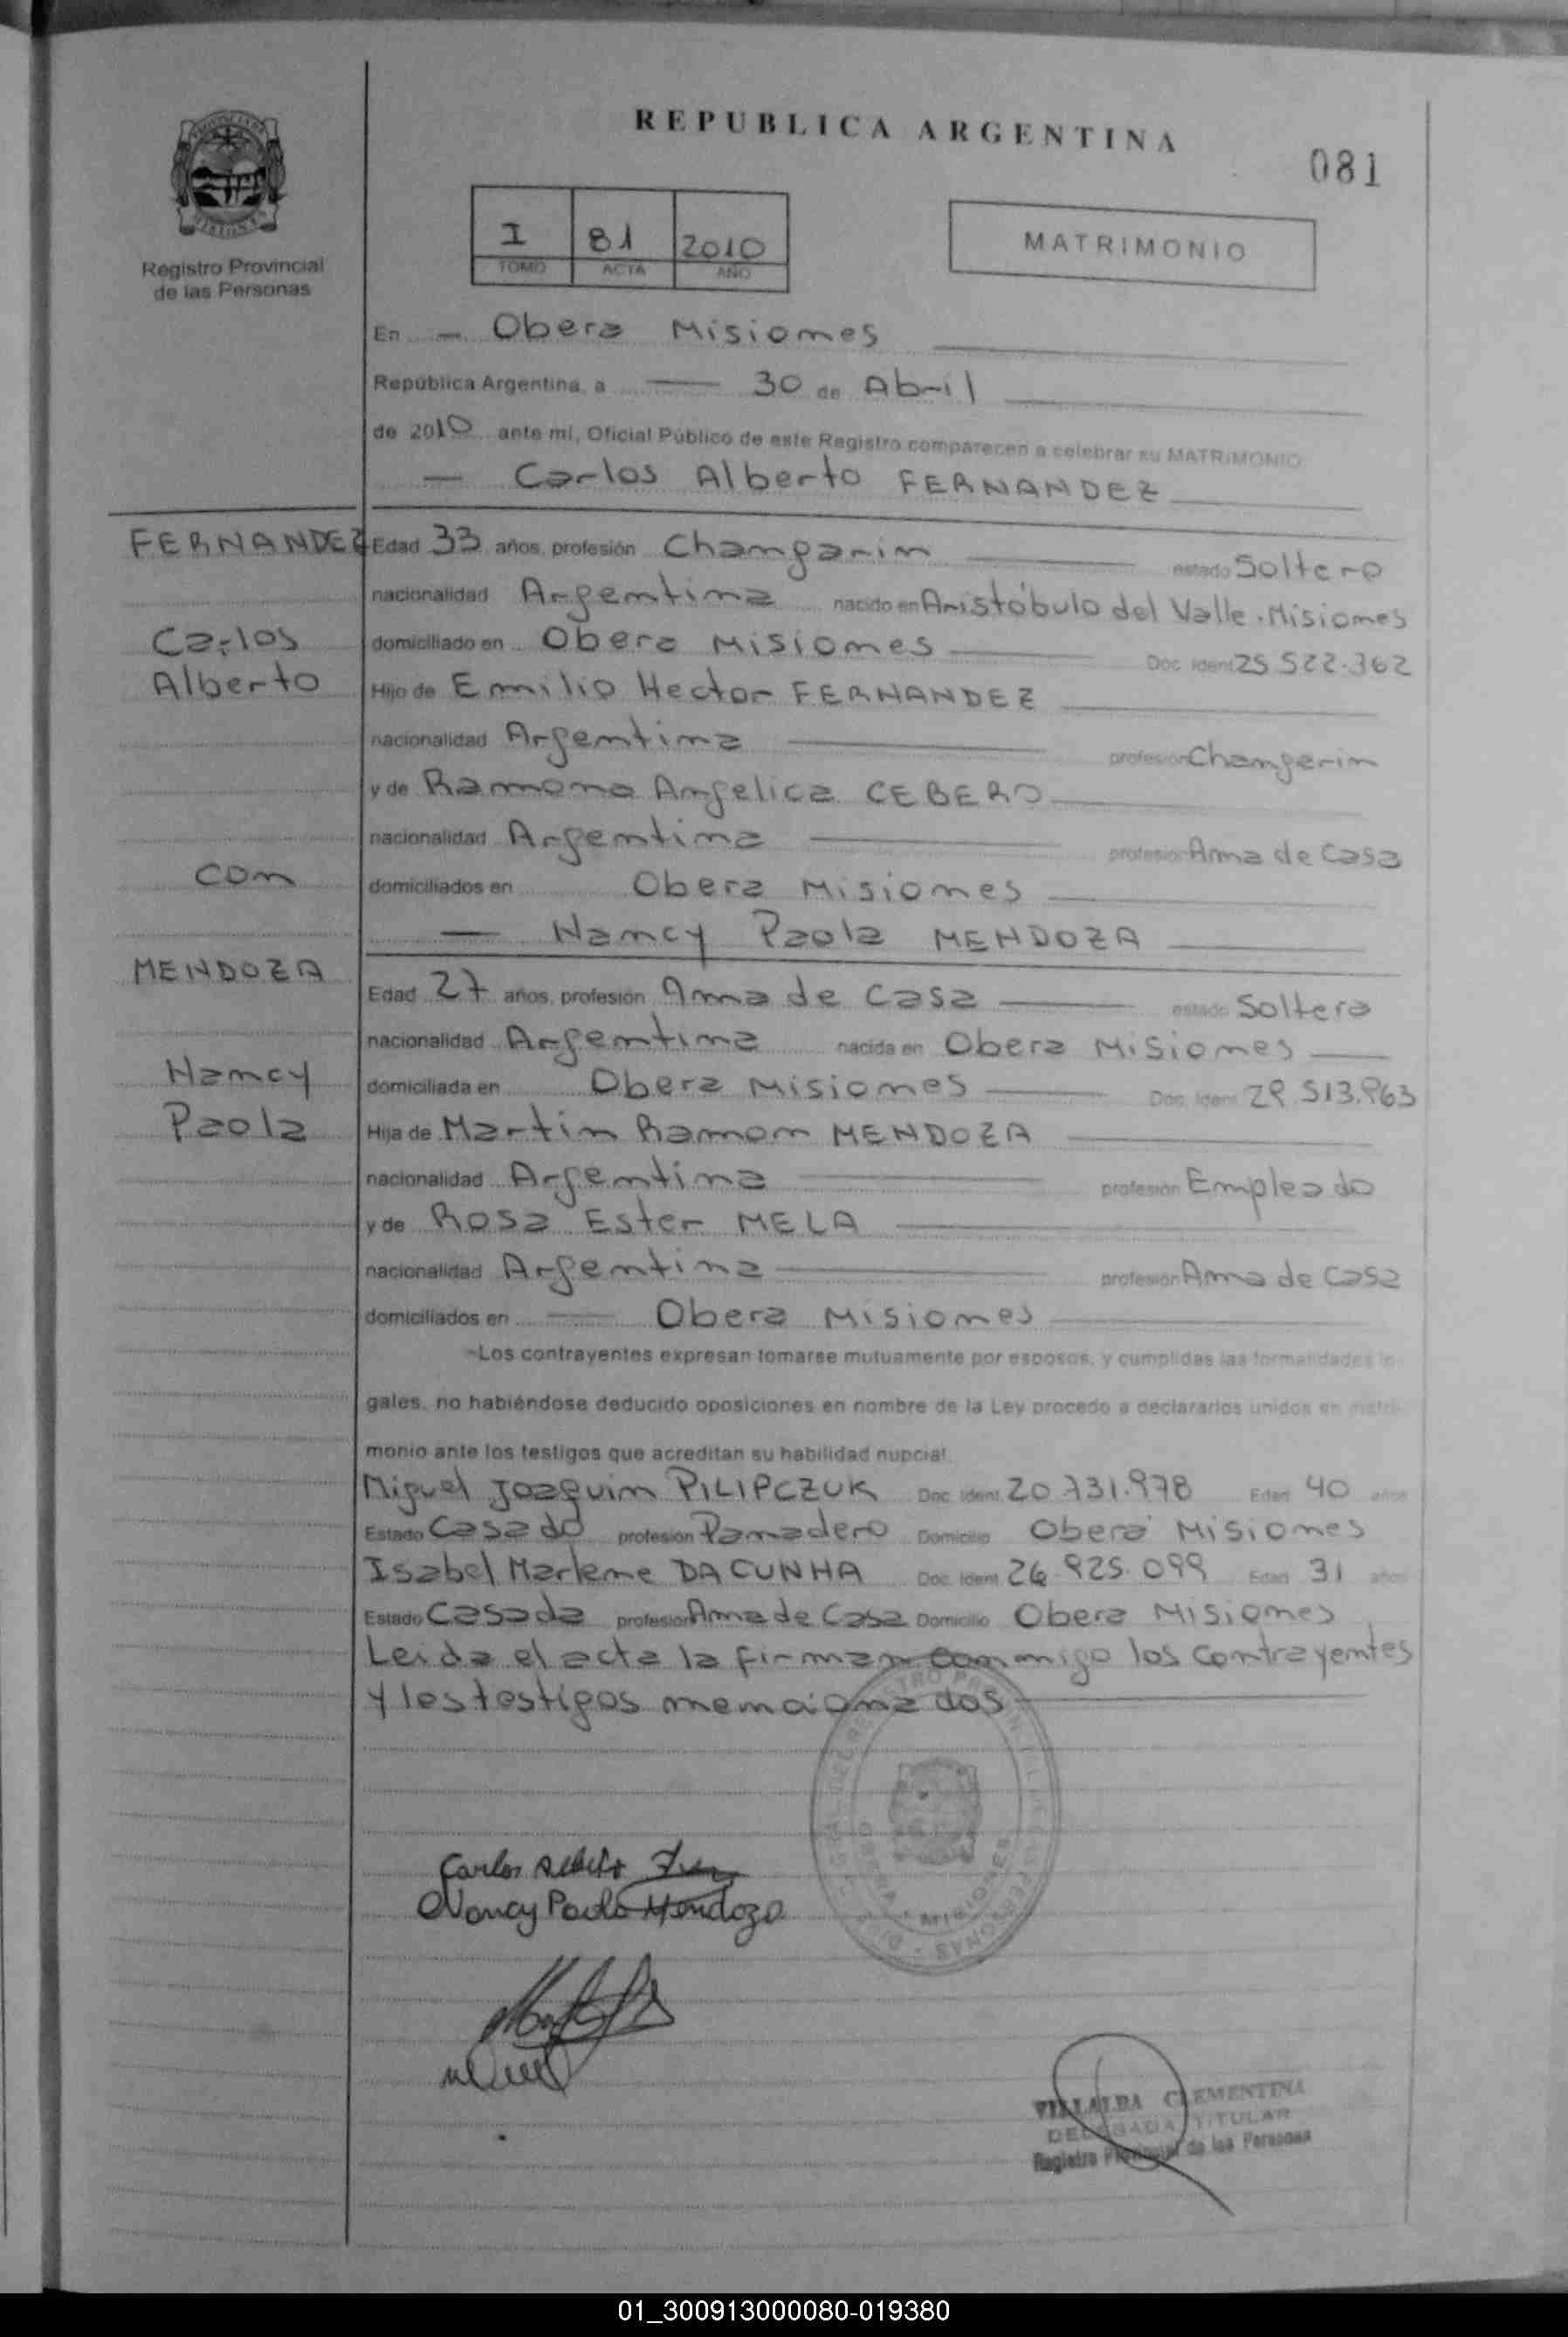 REPUBLICA ARGENTINA
081
Registro Provincial
de las Personas
I 81 2010
TOMO ACTA AÑO
MATRIMONIO
En Obera Misiones
República Argentina, a 30 de Abril
de 2010 ante mi, Oficial Público de este Registro comparecen a celebrar su MATRIMONIO
Carlos Alberto FERNANDEZ
FERNANDEZ
Carlos
Alberto
con
MENDOZA
Nancy
Paola
Edad 33 años, profesión Changarin estado Soltero
nacionalidad Argentina nacido en Aristóbulo del Valle. Misiones
domiciliado en Obera Misiones Doc. Ident 25 522.362
Hijo de Emilio Hector FERNANDEZ
nacionalidad Argentina profesión Changarin
y de Ramona Angelica CEBERO
nacionalidad Argentina profesión Ama de Casa
domiciliados en Obera Misiones
Nancy Paola MENDOZA
Edad 27 años, profesión Ama de Casa estado Soltera
nacionalidad Argentina nacida en Obera Misiones
domiciliada en Obera Misiones Doc. Ident 29.513.963
Hija de Martin Ramon MENDOZA
nacionalidad Argentina profesión Empleado
y de Rosa Ester MELA
nacionalidad Argentina profesión Ama de Casa
domiciliados en Obera Misiones
Los contrayentes expresan tomarse mutuamente por esposos, y cumplidas las formalidades le-
gales, no habiéndose deducido oposiciones en nombre de la Ley procedo a declararlos unidos en matri-
monio ante los testigos que acreditan su habilidad nupcial
Miguel Joaquin PILIPCZUK Doc. Ident 20.731.978 Edad 40 años
Estado Casado profesion Panadero Domicilio Oberá Misiones
Isabel Marlene DA CUNHA Doc. Ident 26.925.099 Edad 31 años
Estado Casada profesion Ama de Casa Domicilio Obera Misiones
Leida el acta la firman conmigo los contrayentes
y los testigos mencionados
MISIONES
Carlos Alberto
Nancy Paola Mendoza
VILLALBA CLEMENTINA
DELEGADA TITULAR
Registro Provincial de las Personas
01_300913000080-019380